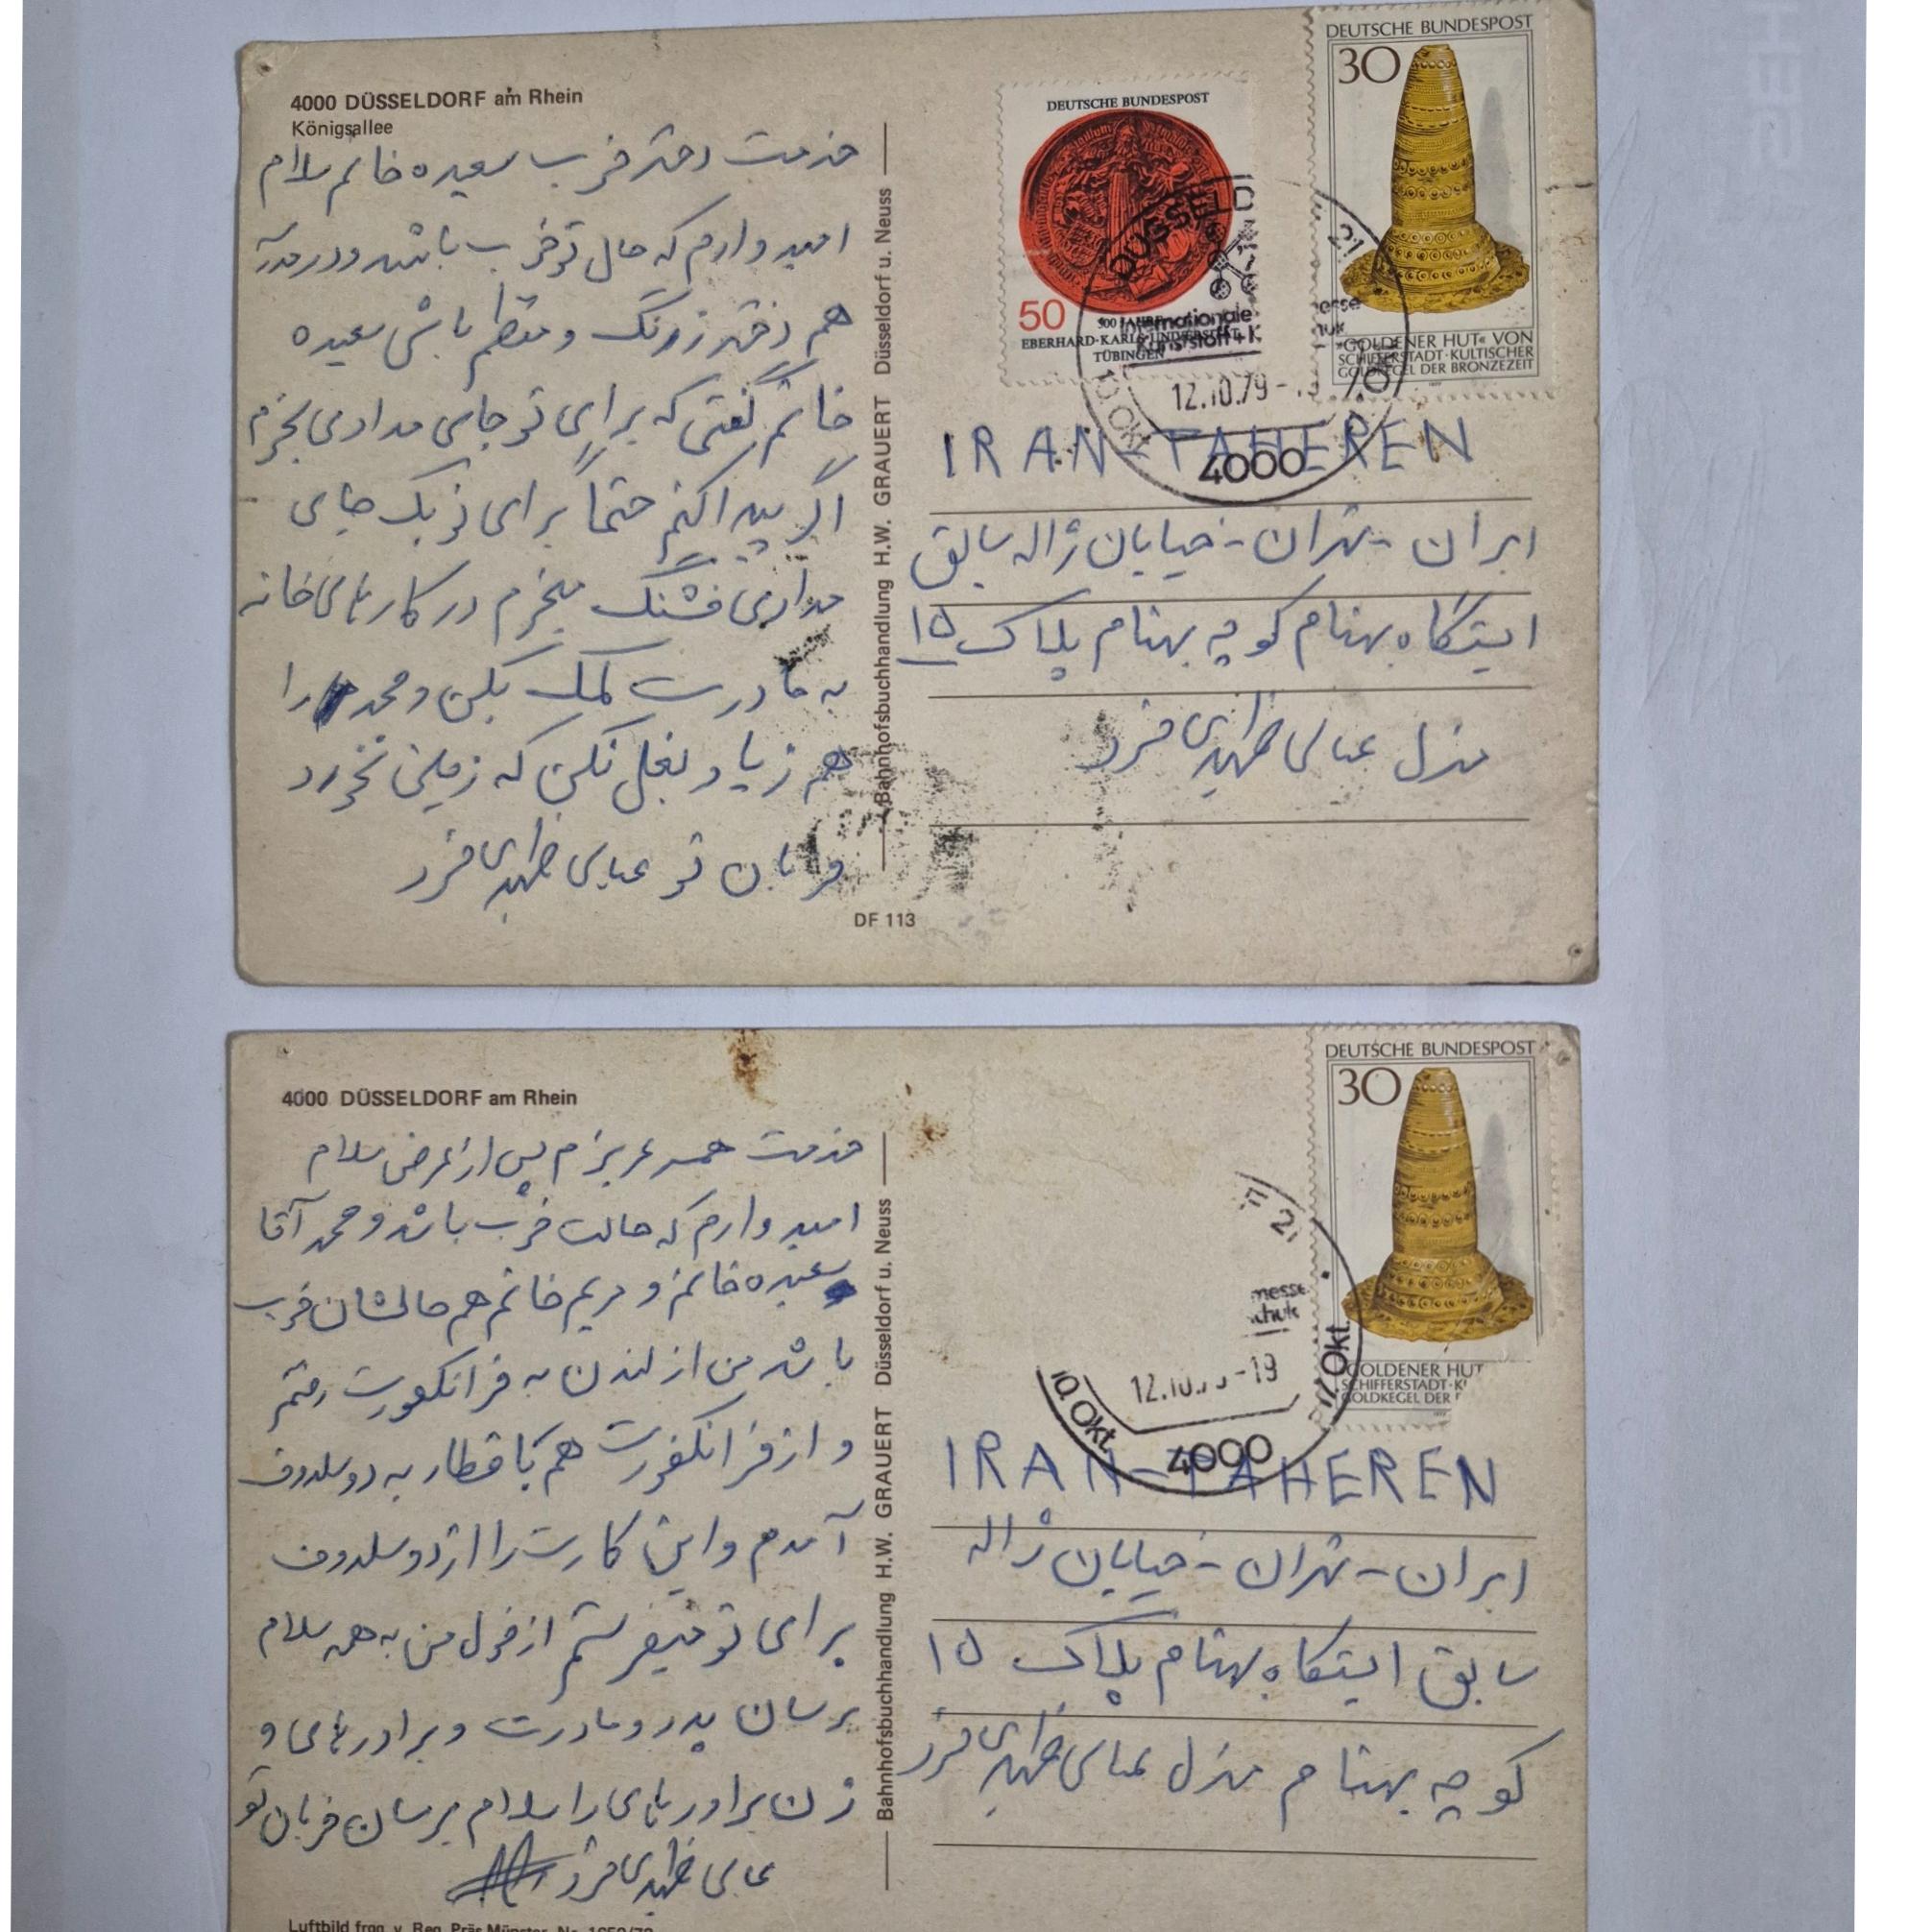 4000 DÜSSELDORF am Rhein
Königsallee
خدمت دختر خوب سعیده خانم سلام
امیدوارم که حال تو خوب باشد و در مدرسه
هم دختر زرنگ و منظم باشی سعیده
خانم گفتی که برای تو جای مدادی بخرم
اگر پیدا کنم حتماً برای تو یک جای
مدادی قشنگ میخرم در کارهای خانه
به مادرت کمک بکن و محمد را
هم زیاد بغل نکن که زمین نخورد
قربان تو عباس ظهیری فرد
DF 113
Bahnhofsbuchhandlung H.W. GRAUERT Düsseldorf u. Neuss
DEUTSCHE BUNDESPOST
50
500 JAHRE
EBERHARD-KARLS-UNIVERSITÄT
TÜBINGEN
DEUTSCHE BUNDESPOST
30
»GOLDENER HUT« VON
SCHIFFERSTADT·KULTISCHER
GOLDKEGEL DER BRONZEZEIT
DÜSSELD
21
Internationale
Kunststoff+K
10. Okt
12.10.79-
4000
IRAN-TAHEREN
ایران - تهران - خیابان ژاله سابق
ایستگاه بهنام کوچه بهنام پلاک ۱۵
منزل عباس ظهیری فرد
4000 DÜSSELDORF am Rhein
خدمت همسر عزیزم پس از عرض سلام
امیدوارم که حالت خوب باشد و محمد آقا
سعیده خانم و مریم خانم هم حالشان خوب
باشد من از لندن به فرانکفورت رفتم
و از فرانکفورت هم با قطار به دوسلدورف
آمدم و این کارت را از دوسلدورف
برای تو میفرستم از قول من به همه سلام
برسان پدر و مادرت و برادرهای و
زن برادرهای را سلام برسان قربان تو
عباس ظهیری فرد
Luftbild freg. v. Reg. Präs. Münster
Bahnhofsbuchhandlung H.W. GRAUERT Düsseldorf u. Neuss
DEUTSCHE BUNDESPOST
30
GOLDENER HUT
SCHIFFERSTADT·K
GOLDKEGEL DER
21
messe
10. Okt.
17. Okt.
-19
4000
IRAN-TAHEREN
ایران - تهران - خیابان ژاله
سابق ایستگاه بهنام پلاک ۱۵
کوچه بهنام منزل عباس ظهیری فرد